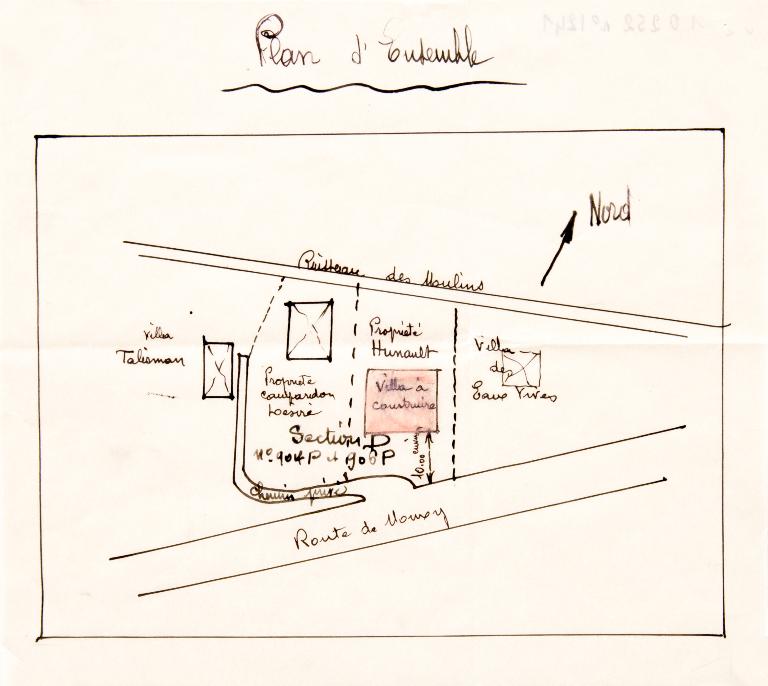 Plan d'Ensemble
Nord
Ruisseau des Moulins
Villa
Talisman
Propriété
Hunault
Villa
des
Eaux Vives
Propriété
Campardon
Désiré
Villa à
construire
Section D
n°. 904P et 906P
10.00
Chemin privé
Route de